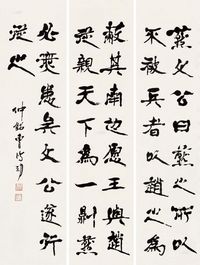 燕文公曰燕之所以
不被兵者以趙之為
蔽其南也願王與趙
從親天下為一則燕
必無患矣文公遂
從之
仲銘